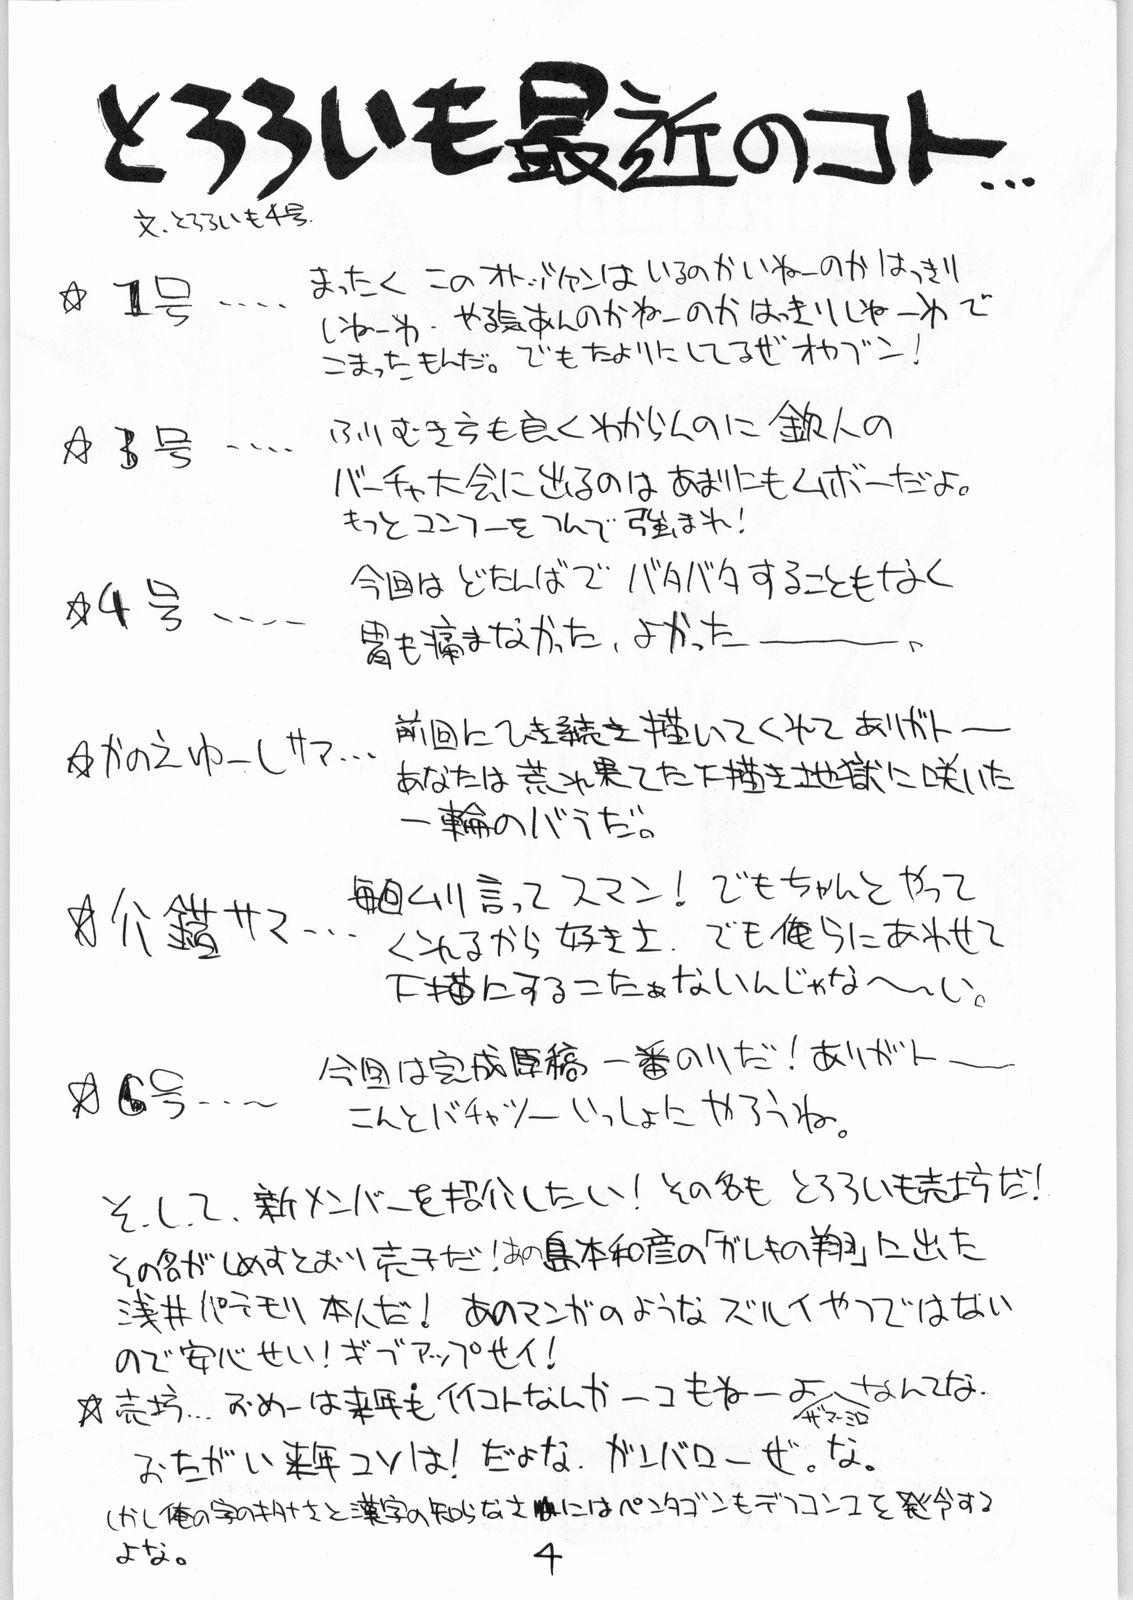 とろろいも最近のコト…
文、とろろいも4号.
☆ 1号 ‥‥ まったく このオトッツァンは いるのかいねーのか はっきり
しねーわ. やる気あんのかねーのか はっきりしねーわ で
こまったもんだ。でもたよりにしてるぜ オヤブン!
☆ 3号 ‥‥ ふりむき方も良くわからんのに 鉄人の
バーチャ大会に出るのは あまりにもムボーだよ。
もっと コンフーをつんで 強まれ!
☆4号 ‥‥ 今回は どたんばで バタバタすることもなく
胃も痛まなかった、よかった――――、
☆かのえゆーしサマ… 前回にひき続き 描いてくれて ありガトー
あなたは 荒れ果てた下描き地獄に咲いた
一輪のバラだ。
☆介錯サマ… 毎回ムリ言って スマン! でもちゃんとやって
くれるから 好きさ. でも俺らにあわせて
下描にするこたぁないんじゃな〜〜い。
☆6号‥‥ 今回は完成原稿 一番のりだ! ありガトー
こんどバチャツー いっしょに やろうね。
そ.し.て、新メンバーを紹介したい! その名も とろろいも売坊だ!
その名がしめすとおり 売子だ! あの島本和彦の「ガレキの翔」に出た
浅井パラモリ 本人だ! あのマンガのような ズルイやつではない
ので 安心せい! ギブアップせイ!
☆売坊… おめーは来年も イイコトなんか 一コもねーよ なんてな.
ザマーミロ
おたがい 来年コソは! だよな. ガンバローぜ。な。
しかし俺の字のキタナさと 漢字の知らなさにはペンタゴンもデフコン1を 発令する
よな。
4